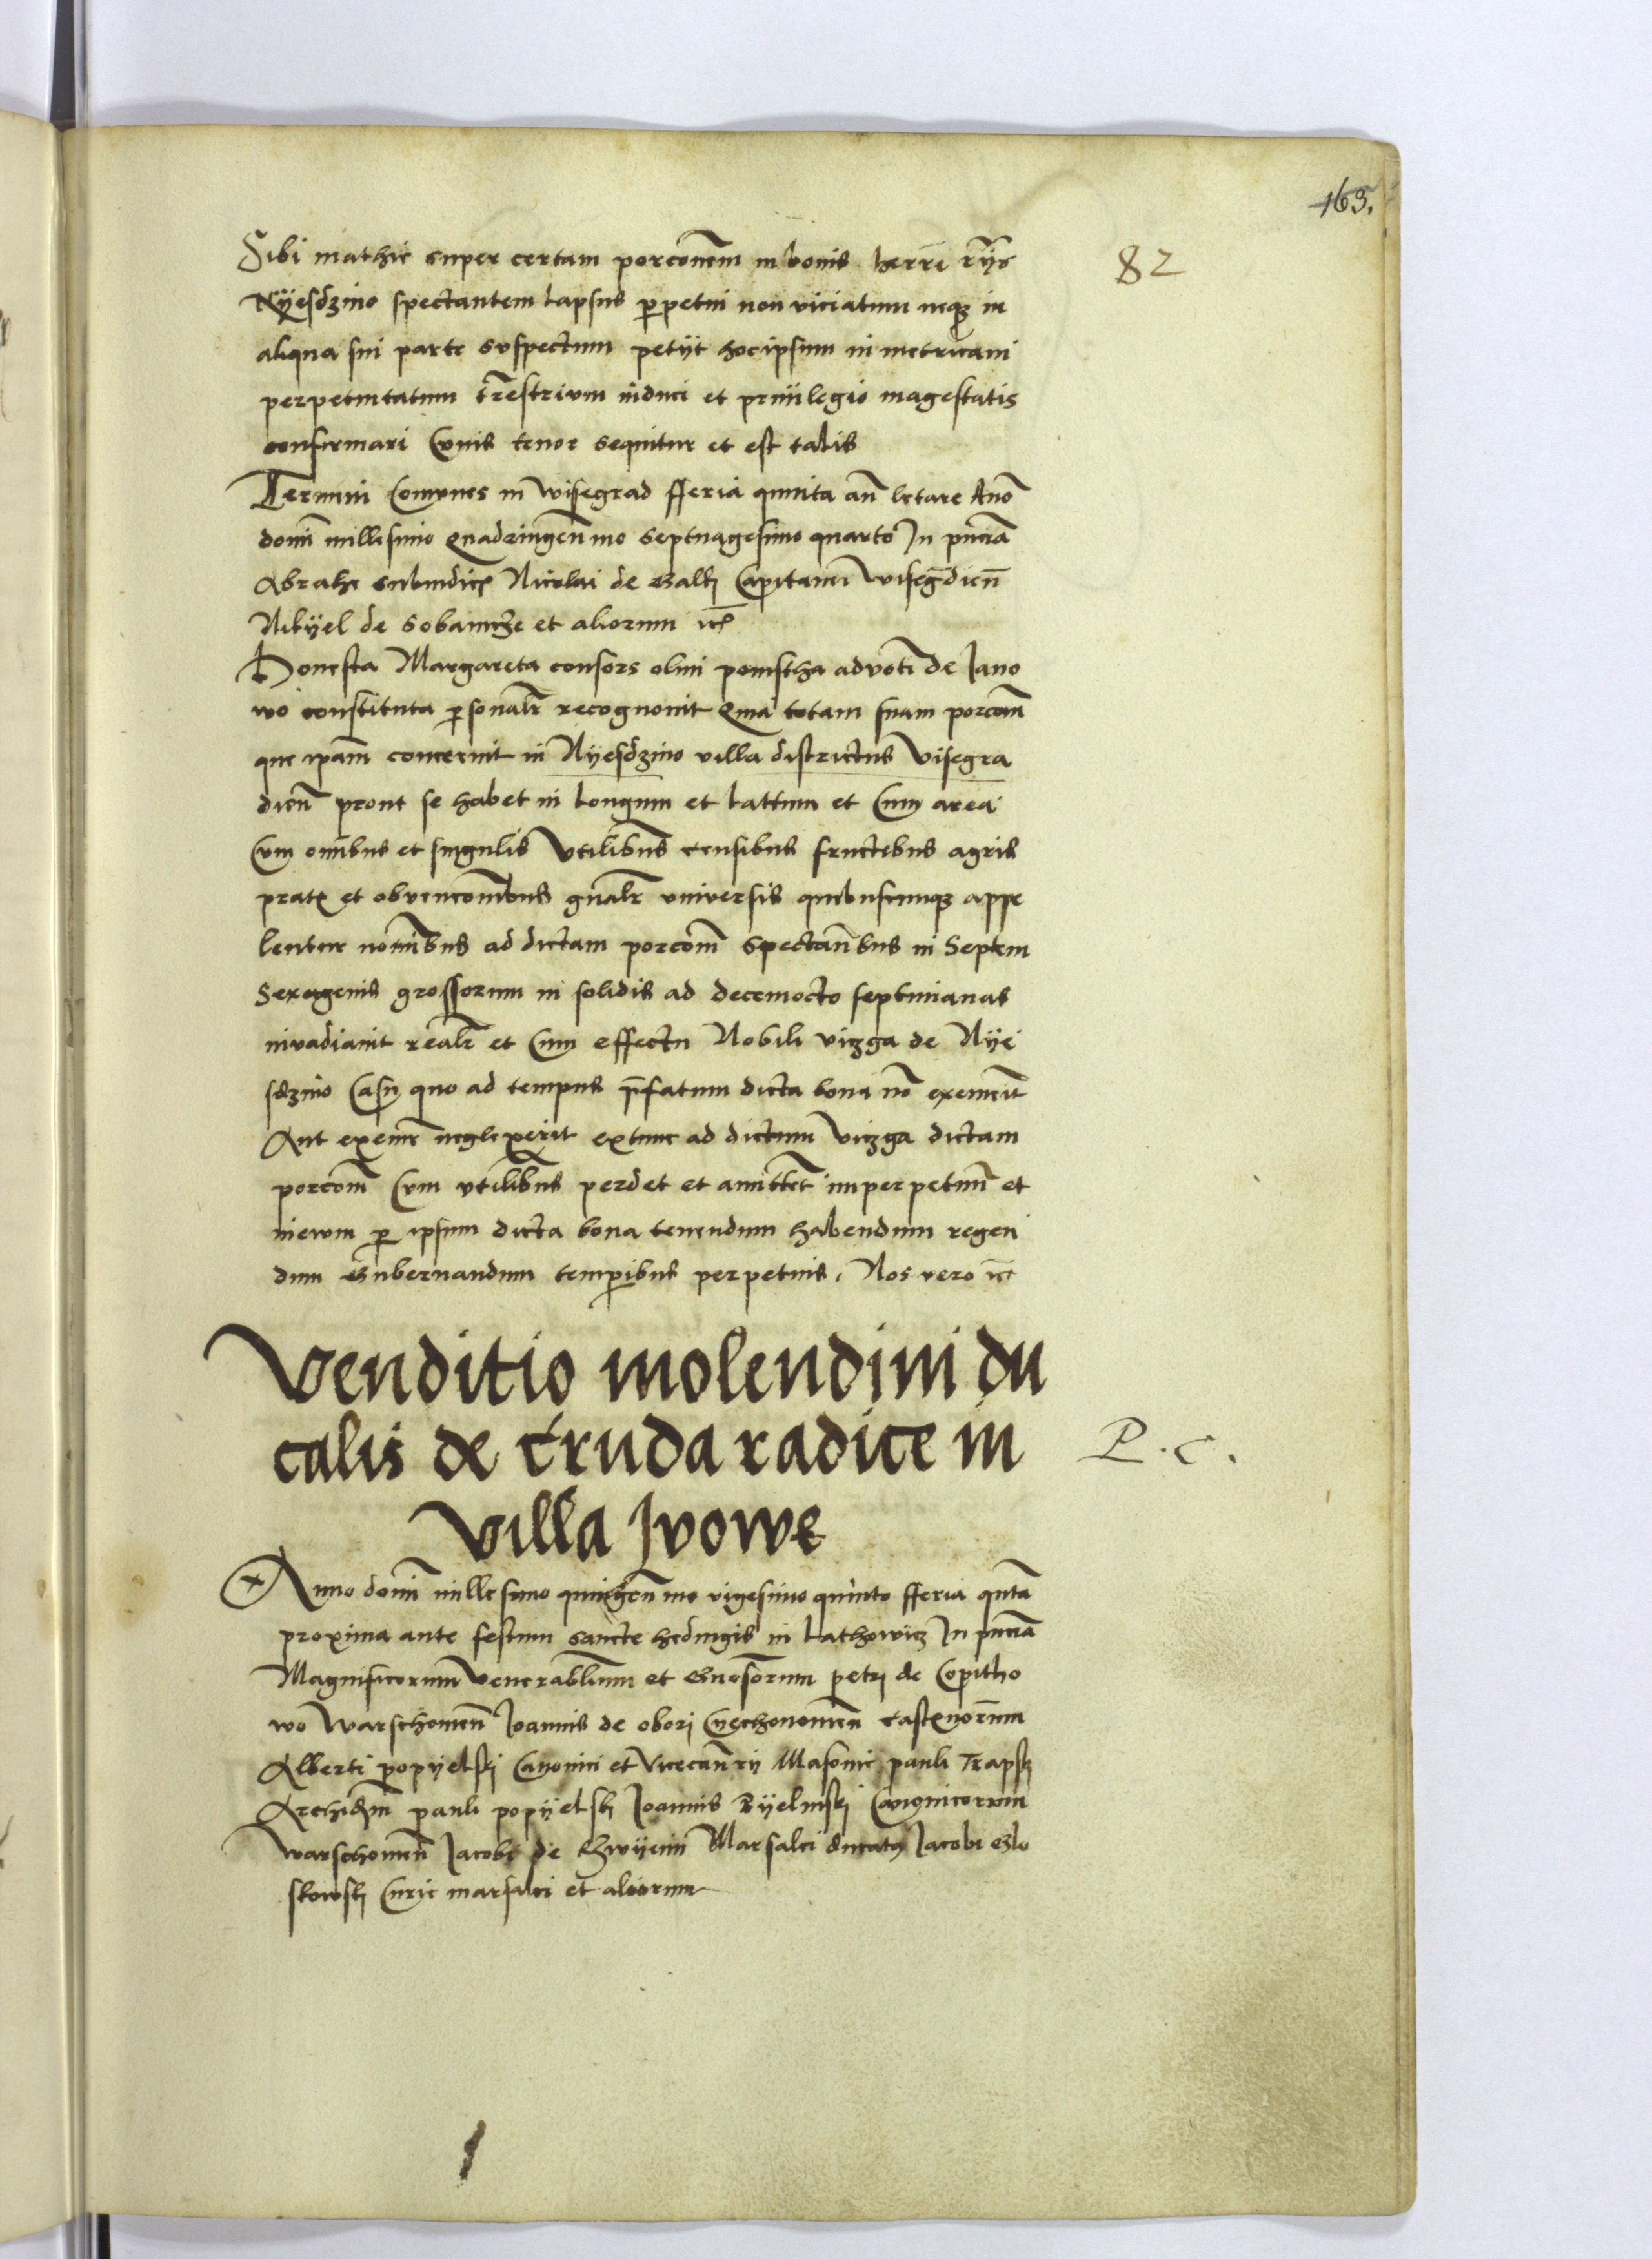 163.
82
Sibi mathie super certam porcōnem in bonis
Nyesdzino spectantem lapsus ꝑpetui non viciatum neqꝫ in
aliqua sui parte suspectum petijt hoc ipsum in metricam
perpetuitatum tr̄estrium induci et priuilegio magestatis
confirmari Cuius tenor sequitur et est talis
Termini Comunes in Wisegrad fferia quinta an̄ letare Anō
domī millesimo Quadringen̄mo septuagesimo quarto In pn̄cia
Abrahe subiudicis Nicolai de Capitanei Wisegrdien̄
de et aliorum
Honesta Margareta consors olim pomscha advoti de Jano
wo constituta ꝑsonalr̄ recognouit Quia totam suam porcom̄
que ipam̄ concernit in Nyesdzino villa districtus Visegra
dien̄ prout se habet in longum et lattum et Cum area
Cum omībus et singulis vtilibus censibus fructebus agris
prat et obvencom̄bus gn̄alr̄ vniversis quibuscumqꝫ appe
lentur nomībus ad dictam porcom̄ spectan̄bus in Septem
Sexagenis grossorum in solidis ad decemocto septimanas
invadiauit realr̄ et Cum effectu Nobili vizga de Nye
sdzino Casu quo ad tempus p̄fatum dicta bona nō exemerit
Aut exeme neglexerit extunc ad dictum Vizga dictam
porcom̄ Cum vtilibus perdet et amittet imperpetuum̄ et
mewm ꝑ ipsum dicta bona tenendum habendum regen
dum Gubernandum temporibus perpetuis. Nos vero
Venditio molendini du
calis de cruda radice in
villa Jvowe
P. C.
Anno domī millesimo quingen̄mo vigesimo quinto fferia qnta
proxima ante festum sancte hedwigis in Lathowicz In pn̄cia
Magnificorum Venerablium et Gnosorum petri de Copitho
wo Warschouien̄ Joannis de obori castēnorum
Alberti popyelski Canonici et Vicecan̄rij Masouie pauli
pauli popyelski Joannis Byelinski Canonicorum
Warschouien̄ Jacobi de Marsalci ducatus Jacobi Glo
skowski Curie marsalci et aliorum